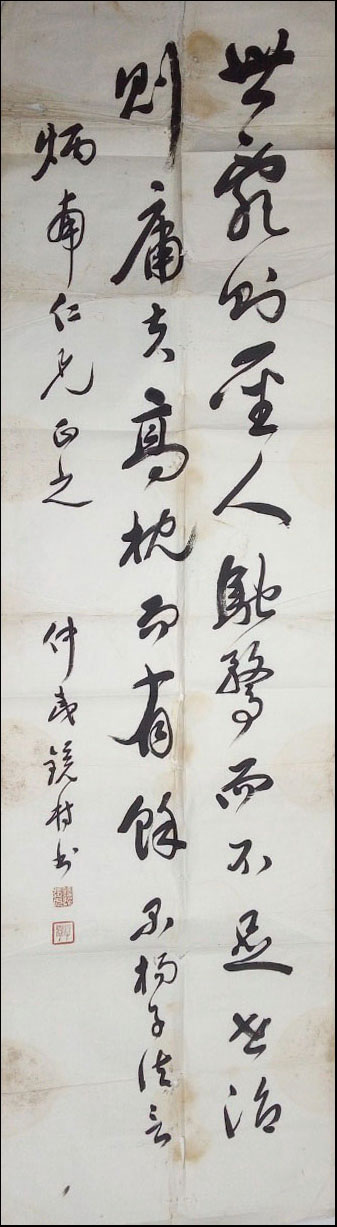 世亂則聖人馳騖而不足世治
則庸夫高枕而有餘 录楊子法言
炳南仁兄正之 仲 鏡村书